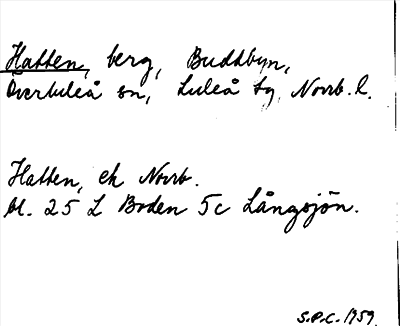 Hatten, berg, Buddbyn,
Överluleå sn, Luleå tg, Norrb. l.
Hatten, ek Norrb.
bl. 25 L Boden 5c Långsjön.
S.P.C. 1959.